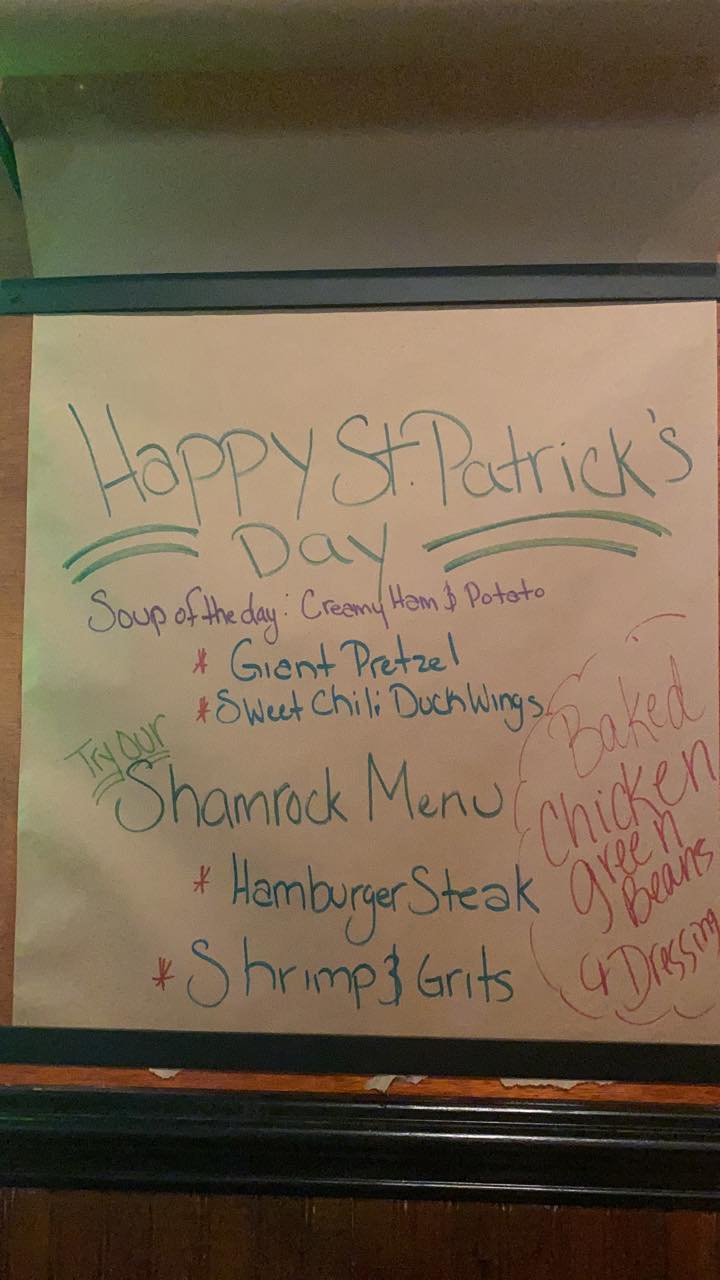 Happy St. Patrick's
Day
Soup of the day: Creamy Ham & Potato
* Giant Pretzel
* Sweet Chili Duck Wings
Try Our
Shamrock Menu
* Hamburger Steak
* Shrimp & Grits
Baked
Chicken
green
Beans
& Dressing